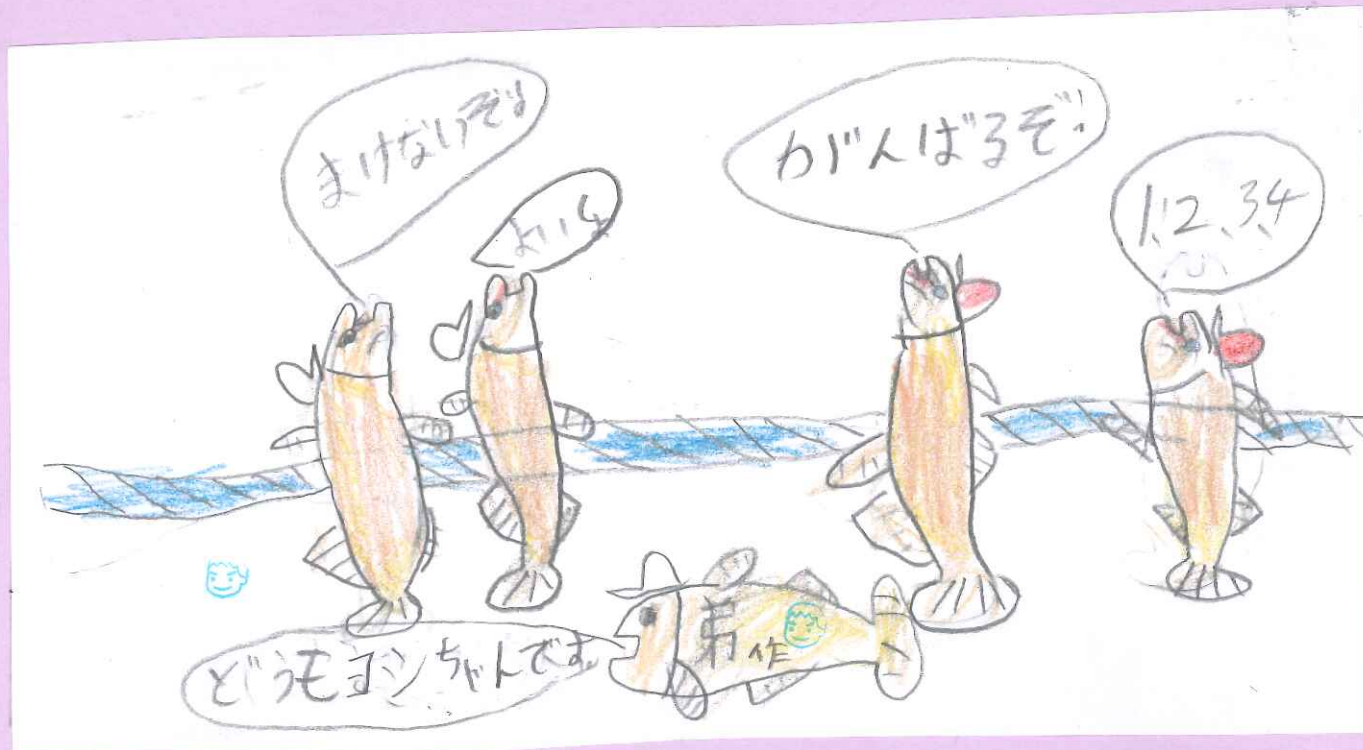 まけないぞ!
よいしょ
がんばるぞ!
1、2、3、4
どうもヨンちゃんです。
弟作